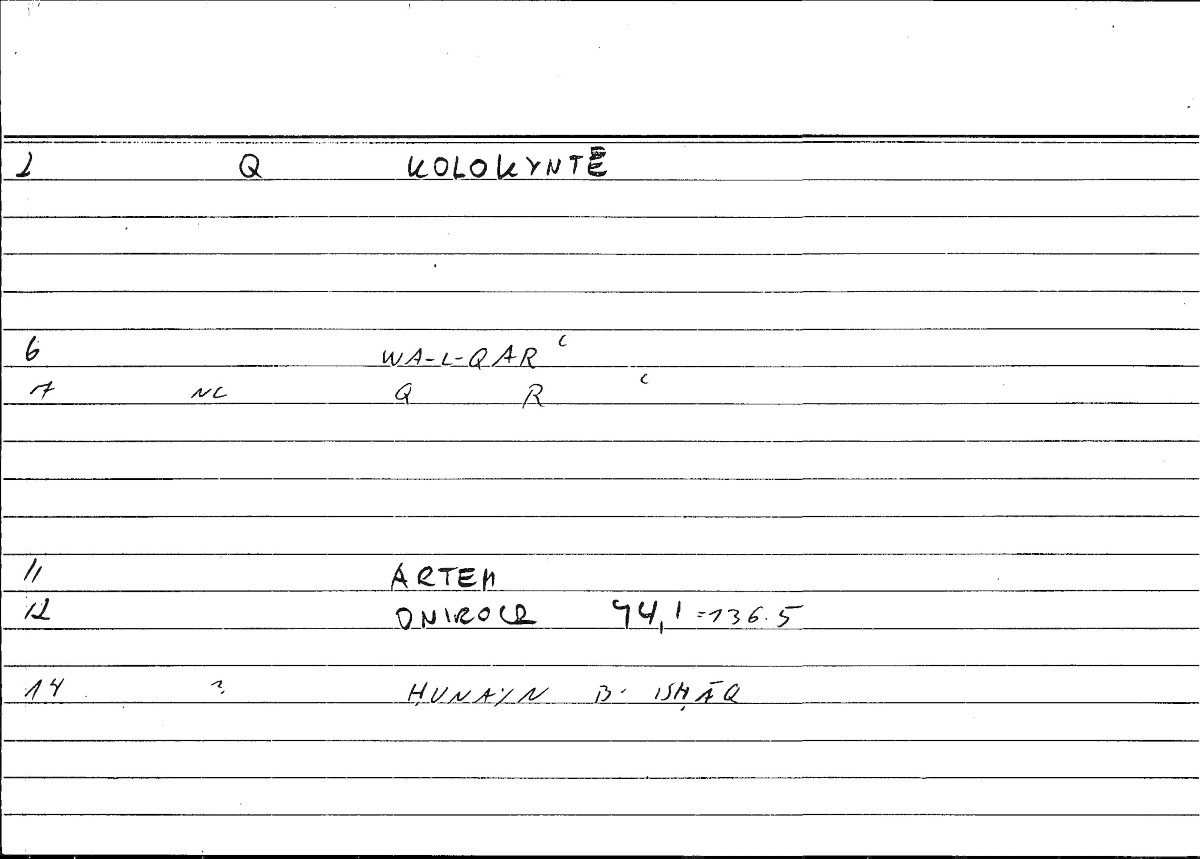 1 Q KOLOKYNTĒ
6 WA-L-QARʿ
7 NC Q R ʿ
11 ARTEM
12 ONIROCR 44,1=136.5
14 2 ḤUNAYN B. ISḤĀQ